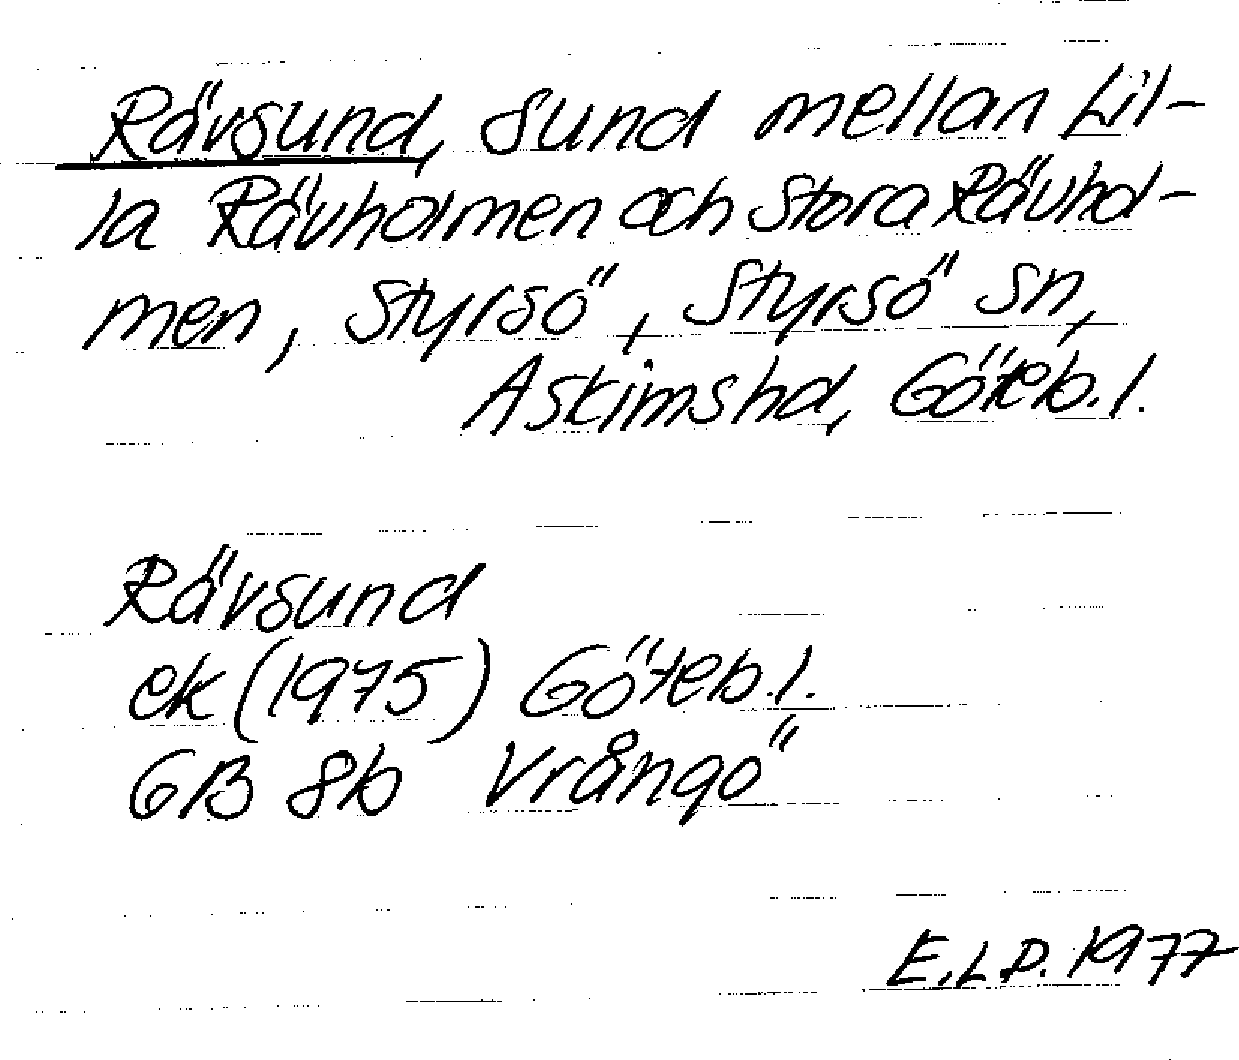 Rävsund, Sund mellan Lil-
la Rävholmen och Stora Rävhol-
men, Styrsö, Styrsö sn,
Askimshd, Göteb.l.
Rävsund
ek (1975) Göteb.l.
GB 8b Vrångö
E.L.P. 1977